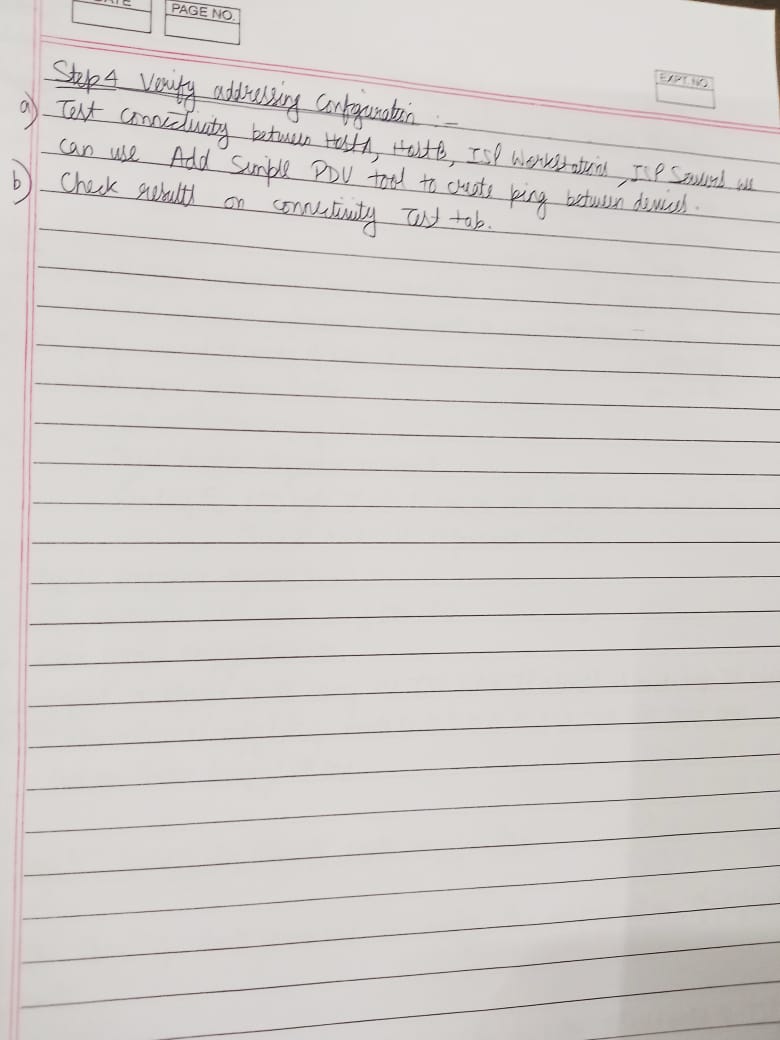 DATE
PAGE NO.
EXPT. NO.
Step 4 Verify addressing Configuration :-
a) Test connectivity between HostA, HostB, ISP Workstation, ISP Server we
can use Add Simple PDU tool to create ping between devices.
b) Check results on connectivity Test tab.